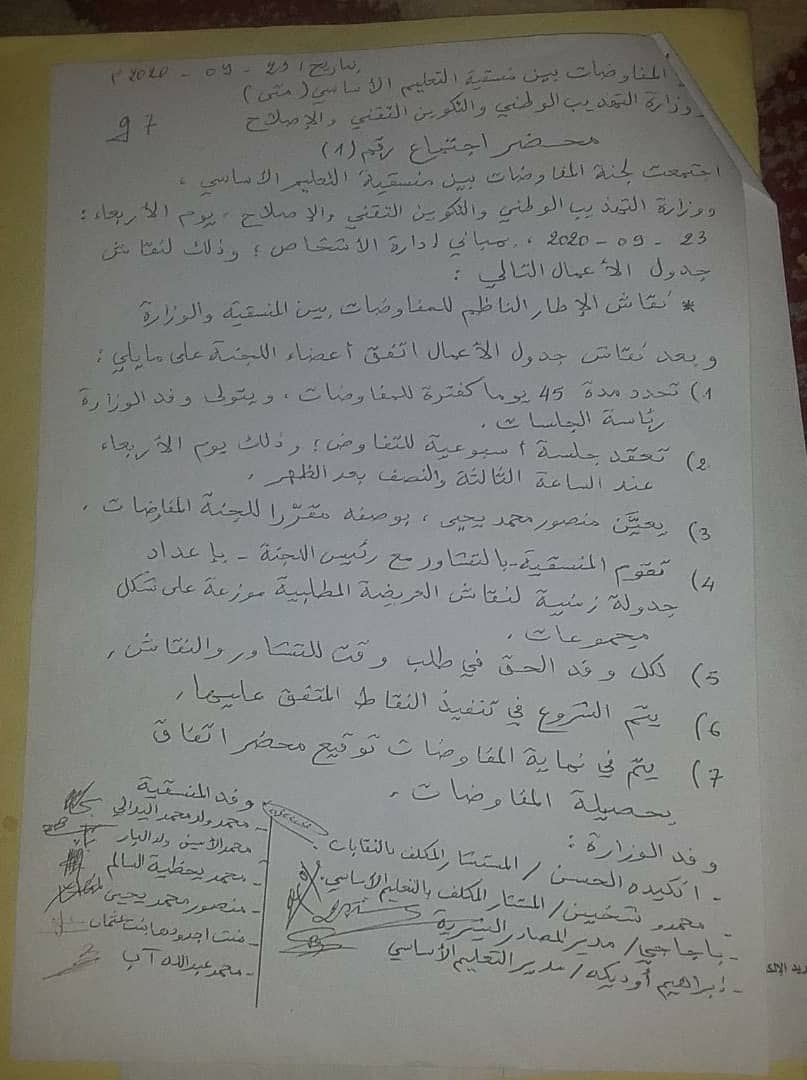 بتاريخ: 23 - 09 - 2020 م
المفاوضات بين منسقية التعليم الأساسي (متى)
ووزارة التهذيب الوطني والتكوين التقني والإصلاح
97
محضر اجتماع رقم (1)
اجتمعت لجنة المفاوضات بين منسقية التعليم الأساسي ،
ووزارة التهذيب الوطني والتكوين التقني والإصلاح ، يوم الأربعاء :
23 - 09 - 2020 ، بمباني إدارة الأشخاص ؛ وذلك لنقاش
جدول الأعمال التالي :
* نقاش الإطار الناظم للمفاوضات بين المنسقية والوزارة
وبعد نقاش جدول الأعمال اتفق أعضاء اللجنة على مايلي :
1) تحدد مدة 45 يوما كفترة للمفاوضات ، ويتولى وفد الوزارة
رئاسة الجلسات .
2) تعقد جلسة أسبوعية للتفاوض ؛ وذلك يوم الأربعاء
عند الساعة الثالثة والنصف بعد الظهر .
3) يعيَّن منصور محمد يحيى ، بوصفه مقرّرا للجنة المفاوضات .
4) تقوم المنسقية - بالتشاور مع رئيس اللجنة - بإعداد
جدولة زمنية لنقاش العريضة المطلبية موزعة على شكل
مجموعات .
5) لكل وفد الحق في طلب وقت للتشاور والنقاش .
6) يتم الشروع في تنفيذ النقاط المتفق عليها .
7) يتم في نهاية المفاوضات توقيع محضر اتفاق
بحصيلة المفاوضات .
وفد الوزارة :
- انكيده الحسن / المستشار المكلف بالنقابات .
- محمدو شخين / المستشار المكلف بالتعليم الأساسي .
- باجاجي / مدير المصادر البشرية
- إبراهيم أوديكه / مدير التعليم الأساسي
وفد المنسقية
- محمد ولد محمد اليدالي
- محمد الأمين ولد البار
- محمد يحظيه السالم
- منصور محمد يحيى
- منت اجدود هامت عثمان
- محمد عبد الله آب